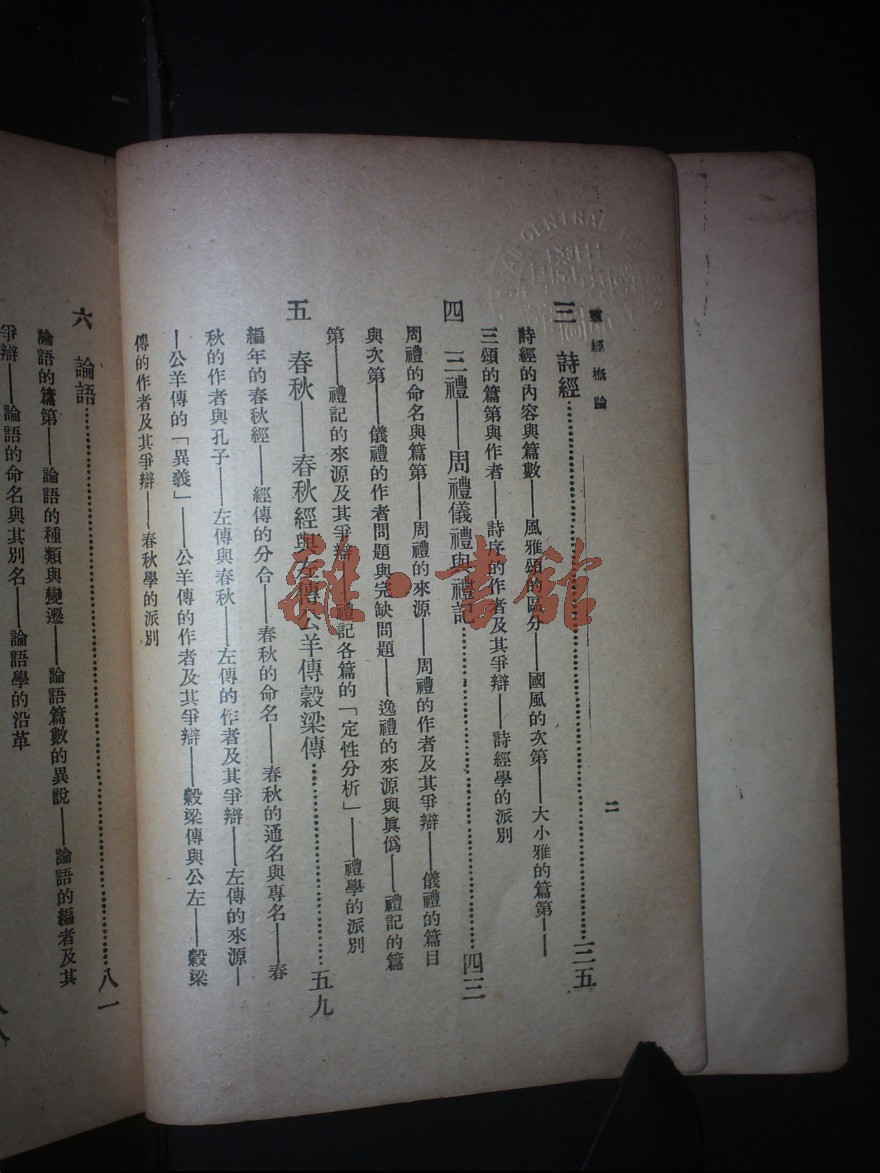 羣經概論
二
三 詩經……三五
詩經的內容與篇數——風雅頌的區分——國風的次第——大小雅的篇第——
三頌的篇第與作者——詩序的作者及其爭辯——詩經學的派別
四 三禮——周禮儀禮與禮記……四三
周禮的命名與篇第——周禮的來源——周禮的作者及其爭辯——儀禮的篇目
與次第——儀禮的作者問題與完缺問題——逸禮的來源與眞僞——禮記的篇
第——禮記的來源及其爭辯——禮記各篇的「定性分析」——禮學的派別
五 春秋——春秋經與左傳公羊傳穀梁傳……五九
編年的春秋經——經傳的分合——春秋的命名——春秋的通名與專名——春
秋的作者與孔子——左傳與春秋——左傳的作者及其爭辯——左傳的來源—
—公羊傳的「異義」——公羊傳的作者及其爭辯——穀梁傳與公左——穀梁
傳的作者及其爭辯——春秋學的派別
六 論語……八一
論語的篇第——論語的種類與變遷——論語篇數的異說——論語的編者及其
爭辯——論語的命名與其別名——論語學的沿革
雜·書館
CENTRAL